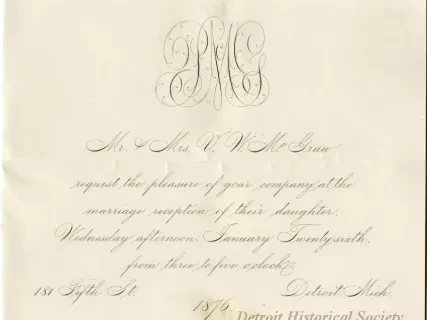 PMG
Mr. & Mrs. V. W. Mc Graw
request the pleasure of your company at the
marriage reception of their daughter.
Wednesday afternoon January Twenty sixth,
from three to five o'clock.
181 Fifth St. Detroit, Mich.
1876.
Detroit Historical Society